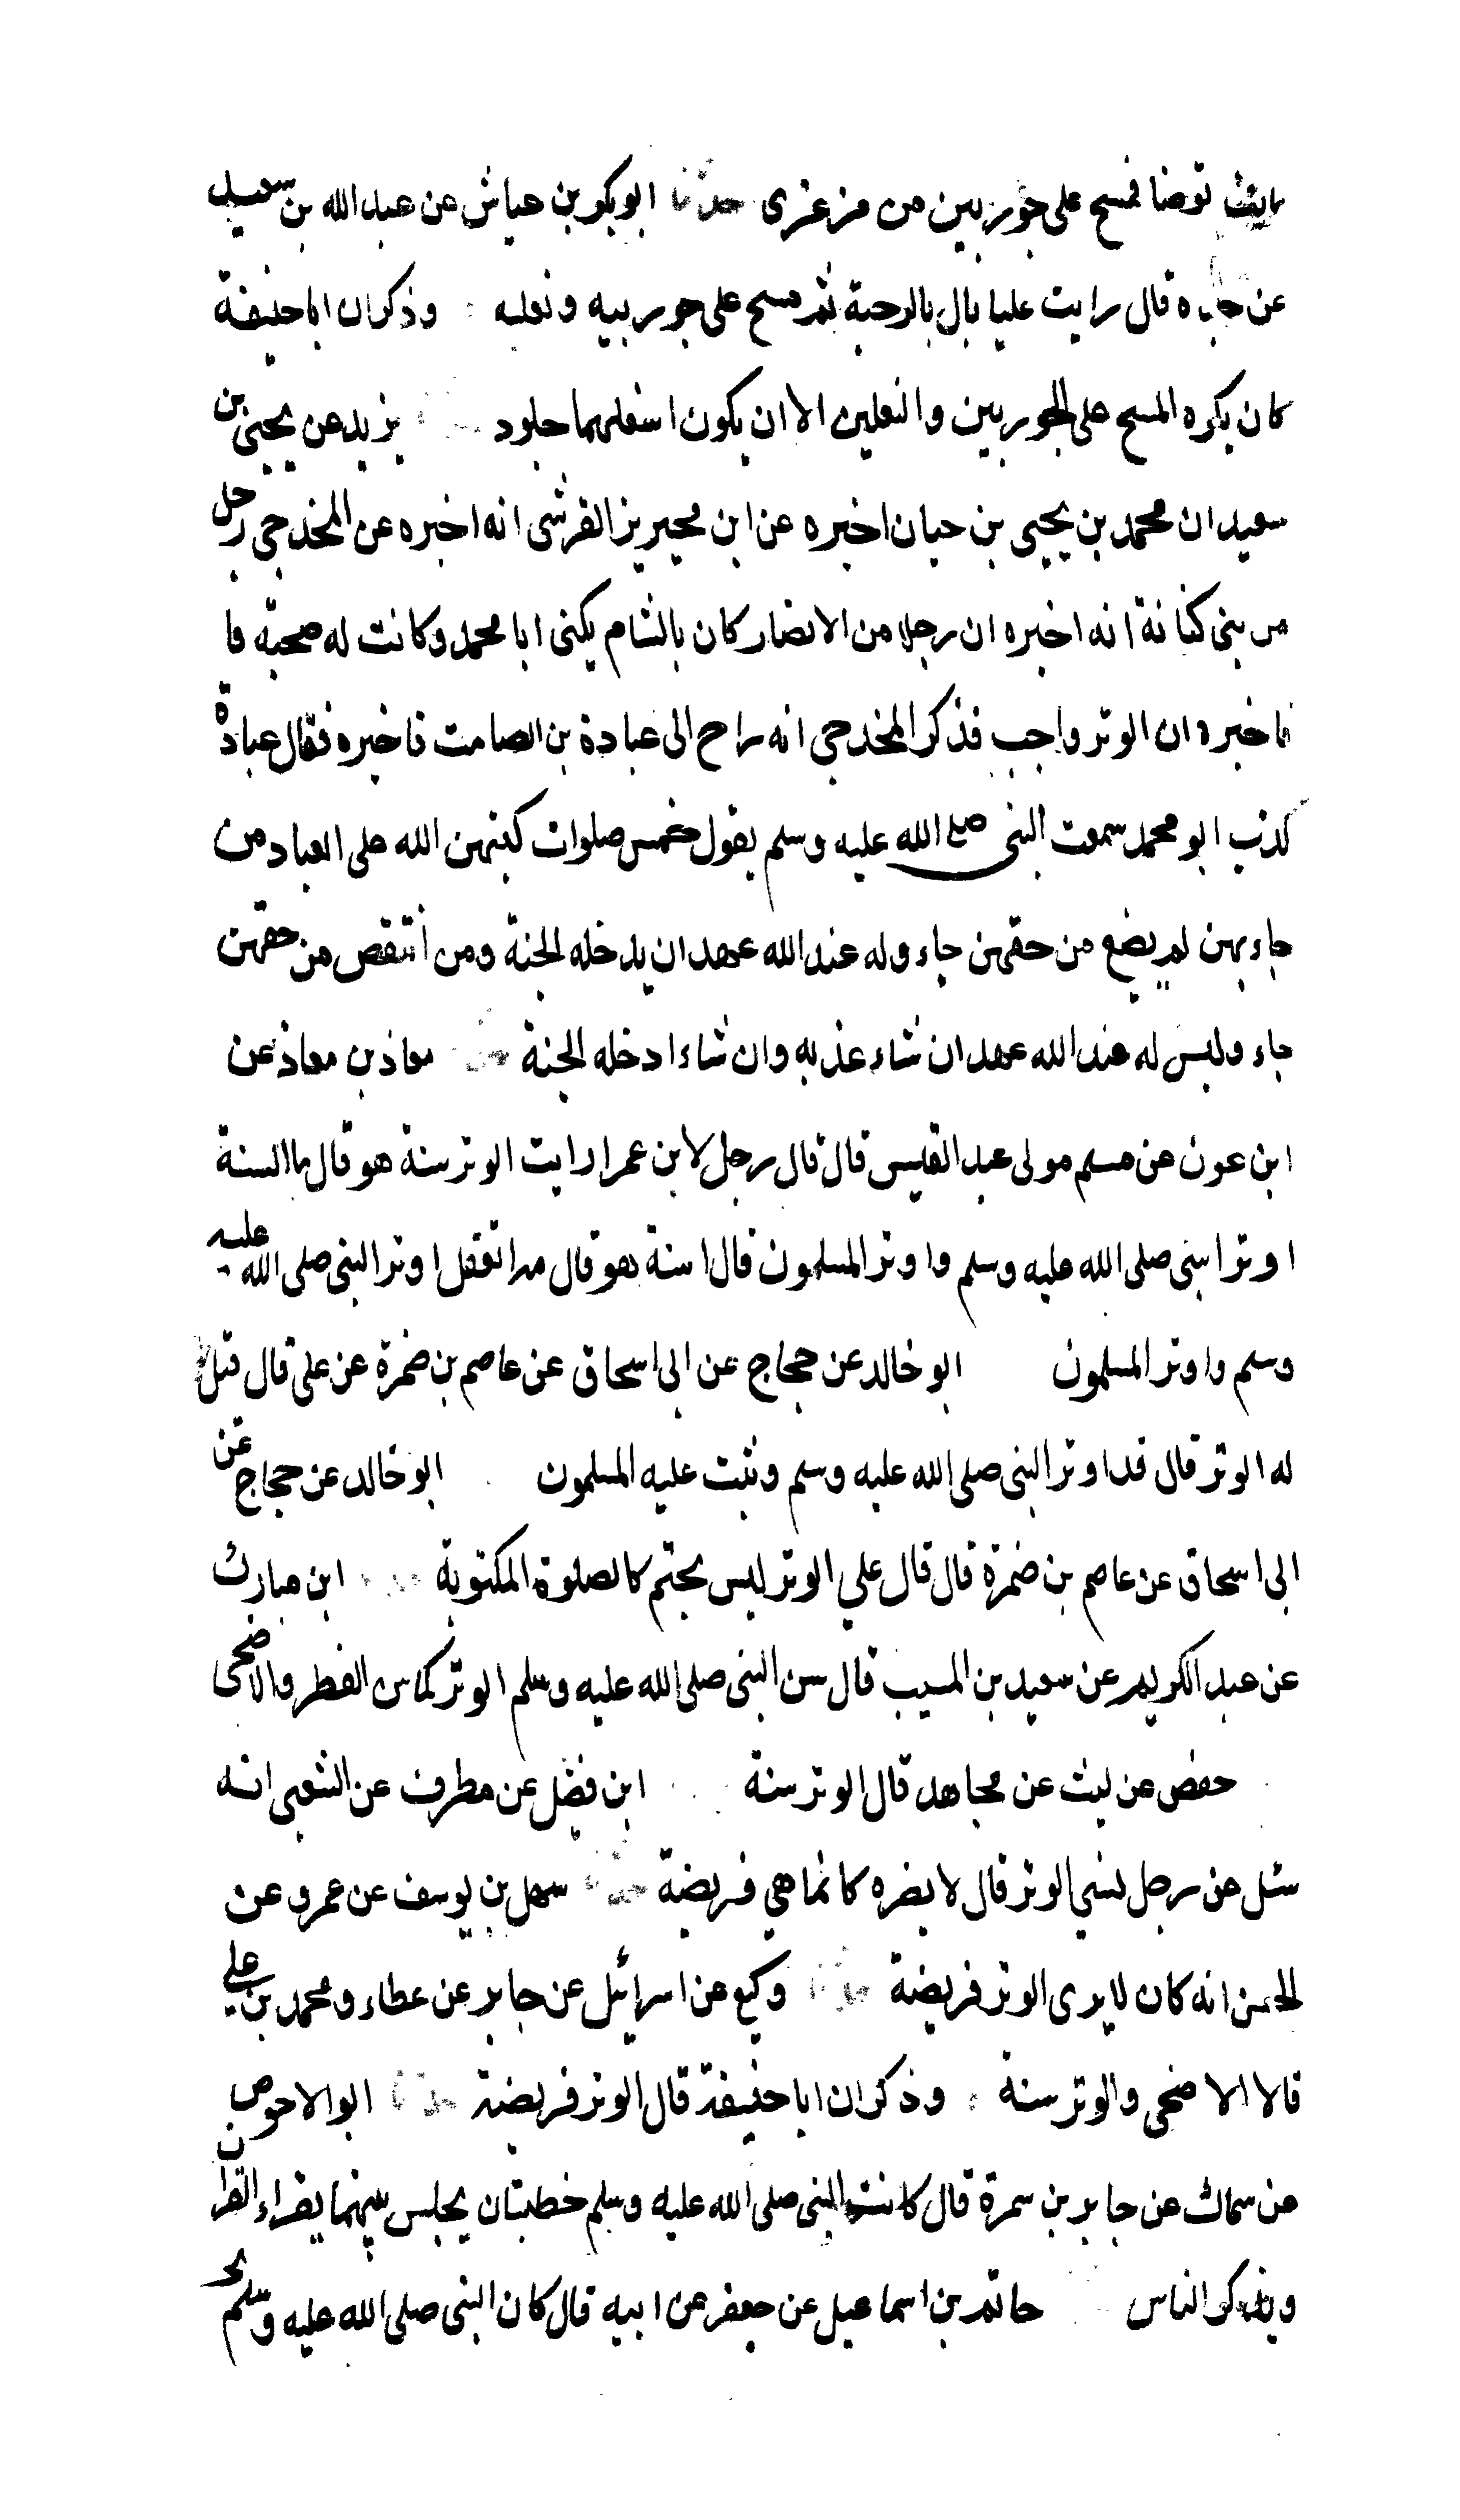 توضا فمسح على جوربين من مرعزى حدثنا ابو بكر بن عياش عن عبد الله بن سعيد
عن قال رايت عليا بال بالرحبة ثم مسح على جوربيه ونعليه وذكر ان ابا حنيفة
كان يكره المسح على الجوربين والنعلين الا ان يكون اسفلهما جلود يزيد عن يحيى بن
سعيد ان محمد بن يحيى بن حبان اخبره عن ابن محيريز القرشى انه اخبره عن المخدجى رجل
من بنى كنانة انه اخبره ان رجلا من الانصار كان بالشام يكنى ابا محمد وكانت له صحبة فا
فاخبره ان الوتر واجب فذكر المخدجى انه راح الى عبادة بن الصامت فاخبره فقال عبادة
كذب ابو محمد سمعت النبى صلى الله عليه وسلم يقول خمس صلوات كتبهن الله على العباد من
جاء بهن لم يضع من حقهن جاء وله عند الله عهد ان يدخله الجنة ومن انتقص من حقهن
جاء وليس له عند الله عهد ان شاء عذبه وان شاء ادخله الجنة معاذ بن معاذ عن
ابن عون عن مسلم مولى عبد القيس قال قال رجل لابن عمر ارايت الوتر سنة هو قال ما السنة
اوتر النبى صلى الله عليه وسلم واوتر المسلمون قال اسنة هو قال مه اتعقل اوتر النبى صلى الله عليه
وسلم واوتر المسلمون ابو خالد عن حجاج عن ابى اسحاق عن عاصم بن ضمرة عن على قال قيل
له الوتر قال قد اوتر النبى صلى الله عليه وسلم وثبت عليه المسلمون ابو خالد عن حجاج عن
ابى اسحاق عن عاصم بن ضمرة قال قال علي الوتر ليس بحتم كالصلوة المكتوبة ابن مبارك
عن عبد الكريم عن سعيد بن المسيب قال سن النبى صلى الله عليه وسلم الوتر كما سن الفطر والاضحى
حفص عن ليث عن مجاهد قال الوتر سنة ابن فضيل عن مطرف عن الشعبى انه
سئل عن رجل نسي الوتر قال لا يضره كانما هي فريضة حدثنا سهل بن يوسف عن عمرو عن
الحسن انه كان لا يرى الوتر فريضة حدثنا وكيع عن اسرائيل عن جابر عن عطاء ومحمد بن علي
قالا الاضحى والوتر سنة وذكر ان ابا حنيفة قال الوتر فريضة حدثنا ابو الاحوص
عن سماك عن جابر بن سمرة قال كانت النبى صلى الله عليه وسلم خطبتان يجلس بينهما يقراء القران
ويذكر الناس حاتم بن اسماعيل عن جعفر عن ابيه قال كان النبى صلى الله عليه وسلم